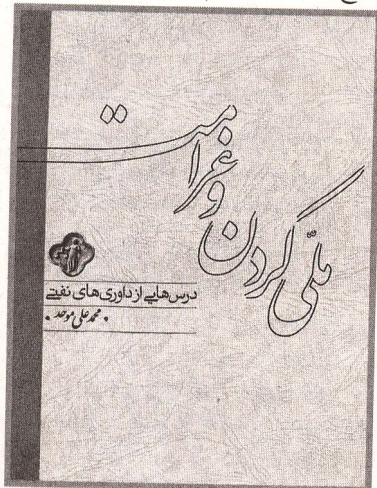 ملّی کردن
و غرامت
درس‌هایی از داوری‌های نفتی
محمدعلی موحد